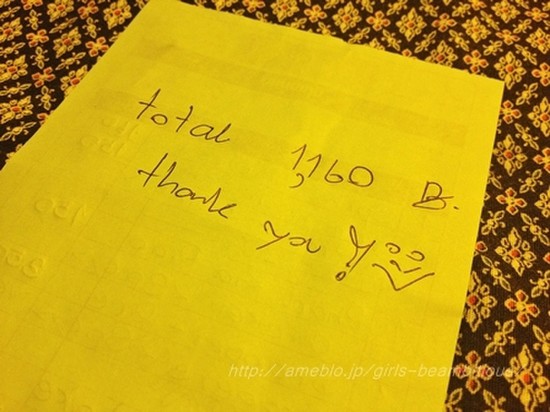 total 1,160 B.
thank you !
http://ameblo.jp/girls-beambitious